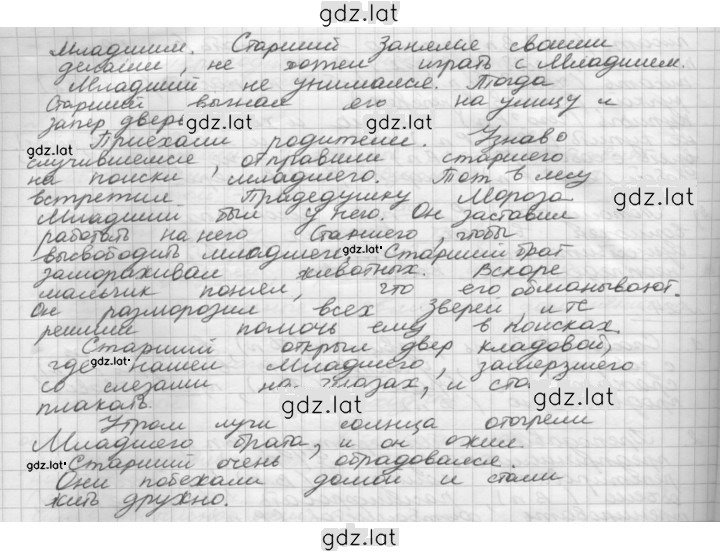 gdz.lat
младшим. Старший занялся своими
делами, не хотел играть с Младшим.
Младший не унимался. Тогда
Старший выгнал его на улицу и
запер дверь gdz.lat gdz.lat
gdz.lat Приехали родители. Узнав о
случившемся, отправили старшего
на поиски младшего. Тот в лесу
встретил Прадедушку Мороза gdz.lat
Младший был у него. Он заставил
работать на него Старшего, чтобы
высвободить младшего. gdz.lat Старший брат
замораживал животных. Вскоре
мальчик понял, что его обманывают.
Он разморозил всех зверей, и те
решили помочь ему в поисках.
Старший открыл двер кладовой,
где gdz.lat нашел Младшего, замерзшего
со слезами на глазах, и
плакать. gdz.lat gdz.lat
Утром лучи солнца отогрели
Младшего брата, и он ожил.
gdz.lat Старший очень обрадовался.
Они побежали домой и стали
жить дружно. gdz.lat
gdz.lat